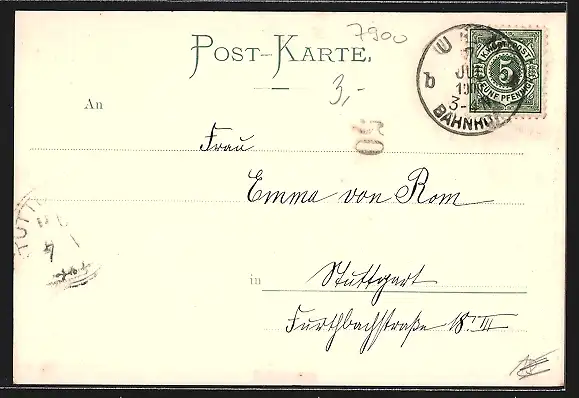 7900
POST-KARTE.
3,-
An
Frau
Emma von Rom
in Stuttgart
Furthbachstraße 18 III
50
b
JUL
3-4
BAHNHOF
K. WÜRTT. POST
5
FÜNF PFENNIG
STUTTG